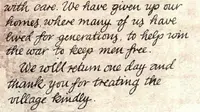 with care. We have given up our
homes where many of us have
lived for generations, to help win
the war to keep men free.
We will return one day and
thank you for treating the
village kindly.